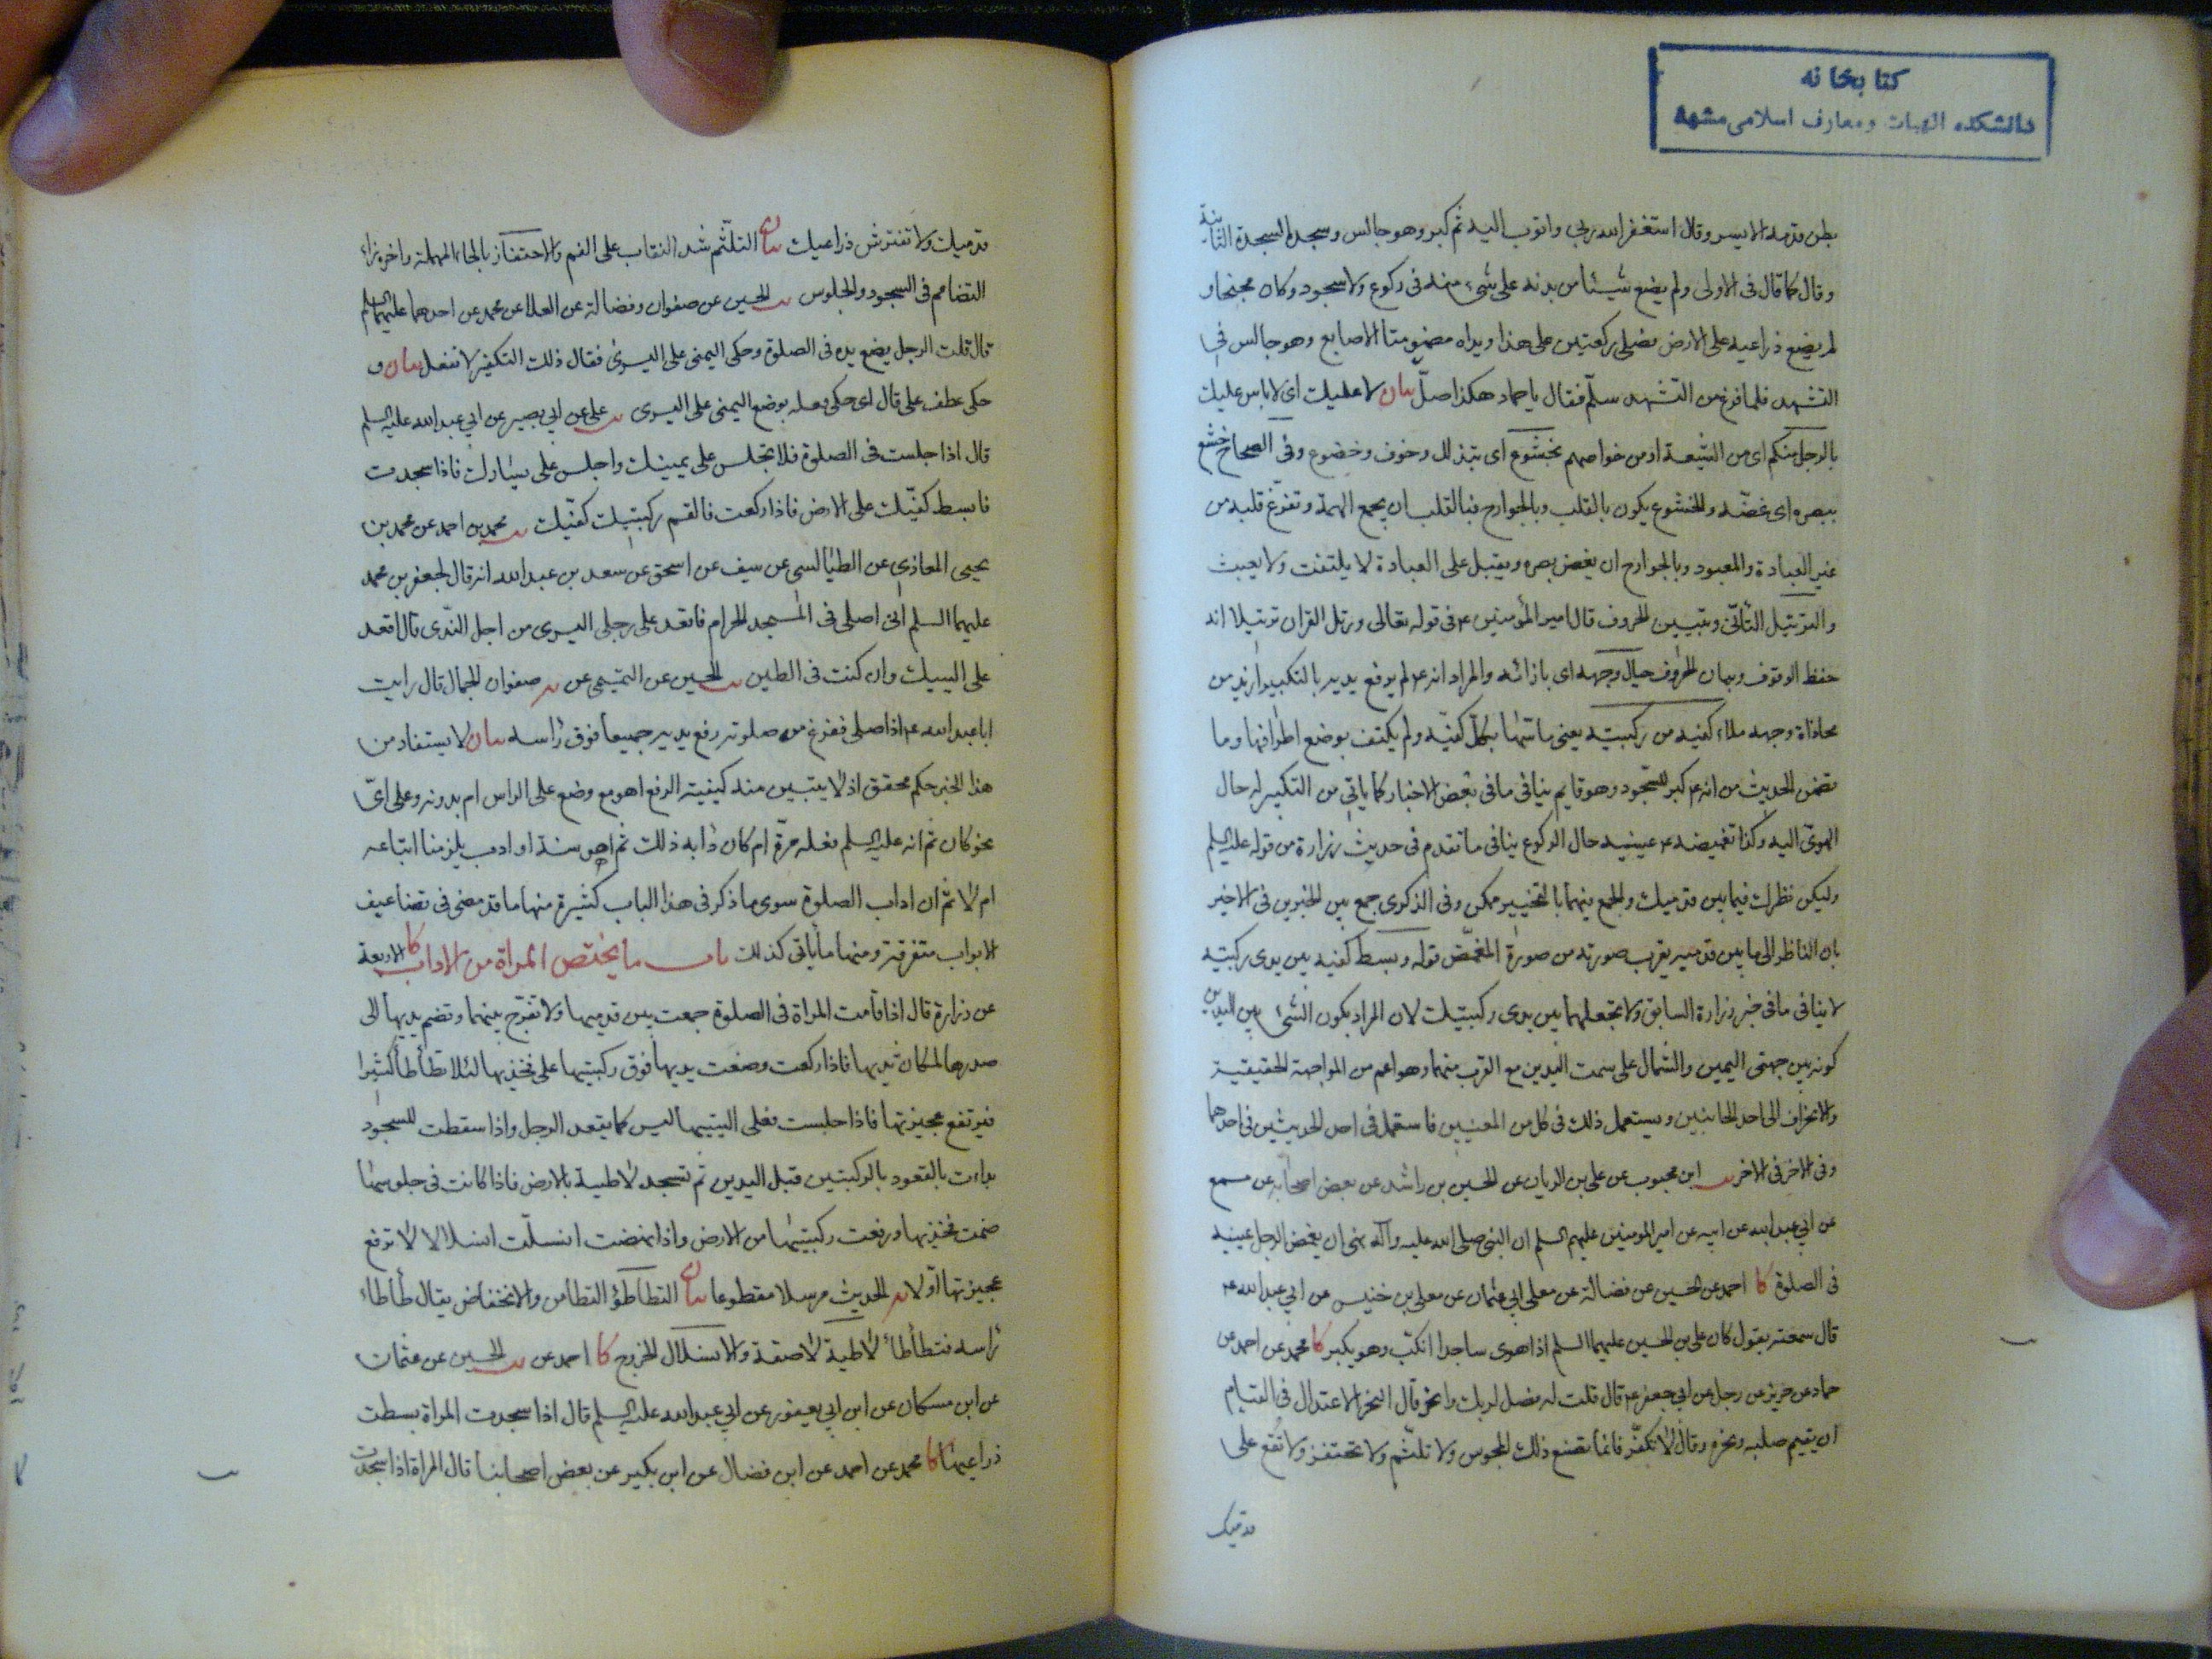 كتابخانه
دانشكده الهيات ومعارف اسلامى مشهد
بطن قدمه الايسر وقال استغفر الله ربى واتوب اليه ثم كبر وهو جالس وسجد السجدة الثانية
وقال كما قال فى الاولى ولم يضع شيئا من بدنه على شىء منه فى ركوع ولا سجود وكان مجنحا و
لم يضع ذراعيه على الارض فصلى ركعتين على هذا ويداه مضمومتا الاصابع وهو جالس فى
التشهد فلما فرغ من التشهد سلم فقال يا حماد هكذا صل بيان لا عليك اى لا باس عليك
بالرجل منكم اى من الشيعة او من خواصهم بخشوع اى بتذلل وخوف وخضوع وفى الصحاح خشع
ببصره اى غضه والخشوع يكون بالقلب وبالجوارح فبالقلب ان يجمع الهمة وتفرغ قلبه من
غير العبادة والمعبود وبالجوارح ان يغض بصره ويقبل على العبادة لا يلتفت ولا يعبث
والترتيل التأنى وتبيين الحروف قال امير المؤمنين ع فى قوله تعالى ورتل القران ترتيلا انه
حفظ الوقوف وبيان الحروف حيال وجهه اى بازائه والمراد انه ع لم يرفع يديه بالتكبير ازيد من
محاذاة وجهه ملاء كفيه من ركبتيه يعنى ماسهما بكل كفيه ولم يكتف بوضع اطرافها وما
تضمن الحديث من انه ع كبر للسجود وهو قايم ينافى ما فى بعض الاخبار كما ياتى من التكبير له حال
الهوى اليه وكذا تغميضه ع عينيه حال الركوع ينافى ما تقدم فى حديث زرارة من قوله عليه السلم
وليكن نظرك فيما بين قدميك والجمع بينهما بالتخيير ممكن وفى الذكرى جمع بين الخبرين فى الاخير
بان الناظر الى ما بين قدميه يقرب صورته من صورة المغمض قوله وبسط كفيه بين يدى ركبتيه
لا ينافى ما فى خبر زرارة السابق ولا تجعلهما بين يدى ركبتيك لان المراد بكون الشىء بين اليدين
كونه بين جهتى اليمين والشمال على سمت اليدين مع القرب منهما وهو اعم من المواجهة الحقيقية
والانحراف الى احد الجانبين ويستعمل ذلك فى كل من المعنيين فاستعمل فى احد الحديثين فى احدهما
وفى الاخر فى الاخر يب ابن محبوب عن على بن الريان عن الحسين بن راشد عن بعض اصحابه عن مسمع
عن ابي عبد الله عن ابيه عن امير المومنين عليهم السلم ان النبى صلى الله عليه وآله نهى ان يغمض الرجل عينيه
فى الصلوة كا احمد عن الحسين عن فضالة عن معلى ابى عثمان عن معلى بن خنيس عن ابي عبد الله ع
قال سمعته يقول كان على بن الحسين عليهما السلم اذا هوى ساجدا انكب وهو يكبر كا محمد عن احمد عن
حماد عن حريز عن رجل عن ابي جعفر ع قال قلت له فصل لربك وانحر قال النحر الاعتدال فى القيام
ان يقيم صلبه ونحره وقال لا تكفر فانما تصنع ذلك المجوس ولا تلثم ولا تحتفز ولا تقع على
قدميك
قدميك ولا تفترش ذراعيك بيان التلثم شد النقاب على الفم والاحتفاز بالحاء المهملة واخره زاء
التضامم فى السجود والجلوس يب الحسين عن صفوان وفضالة عن العلا عن محمد عن احدهما عليهما السلم
قال قلت الرجل يضع يده فى الصلوة وحكى اليمنى على اليسرى فقال ذلك التكفير لا تفعل بيان و
حكى عطف على قال اى حكى فعله بوضع اليمنى على اليسرى يب على عن ابي بصير عن ابي عبد الله عليه السلم
قال اذا جلست فى الصلوة فلا تجلس على يمينك واجلس على يسارك فاذا سجدت
فابسط كفيك على الارض فاذا ركعت فالقم ركبتيك كفيك يب محمد بن احمد عن محمد بن
يحيى المعاذى عن الطيالسى عن سيف عن اسحق عن سعد بن عبد الله انه قال لجعفر بن محمد
عليهما السلم انى اصلى فى المسجد الحرام فاقعد على رجلى اليسرى من اجل الندى قال اقعد
على اليتيك وان كنت فى الطين يب الحسين عن التميمى عن يه صفوان الجمال قال رايت
ابا عبد الله ع اذا صلى ففرغ من صلوته رفع يديه جميعا فوق راسه بيان لا يستفاد من
هذا الخبر حكم محقق اذ لا يتبين منه كيفية الرفع اهو مع وضع على الراس ام بدونه وعلى اى
نحو كان ثم انه عليه السلم فعله مرة ام كان دابه ذلك ثم اهو سنة او ادب يلزمنا اتباعه
ام لا ثم ان اداب الصلوة سوى ما ذكر فى هذا الباب كثيرة منها ما قد مضى فى تضاعيف
الابواب متفرقة ومنها ما ياتى كذلك باب ما يختص المراة من الاداب كا الاربعة
عن زرارة قال اذا قامت المراة فى الصلوة جمعت بين قدميها ولا تفرج بينهما وتضم يديها الى
صدرها لمكان ثدييها فاذا ركعت وضعت يديها فوق ركبتيها على فخذيها لئلا تطأطأ كثيرا
فيرتفع عجيزتها فاذا جلست فعلى اليتيها ليس كما يقعد الرجل واذا سقطت للسجود
بدات بالقعود بالركبتين قبل اليدين ثم تسجد لاطية بالارض فاذا كانت فى جلوسها
ضمت فخذيها ورفعت ركبتيها من الارض واذا نهضت انسلت انسلالا لا ترفع
عجيزتها اولا يه الحديث مرسلا مقطوعا بيان التطاطؤ التطامن والانخفاض يقال طأطاء
راسه فتطأطأ لاطية لاصقة والانسلال الخروج كا احمد عن يب الحسين عن عثمان
عن ابن مسكان عن ابن ابي يعفور عن ابي عبد الله عليه السلم قال اذا سجدت المراة بسطت
ذراعيها كا محمد عن احمد عن ابن فضال عن ابن بكير عن بعض اصحابنا قال المراة اذا سجدت